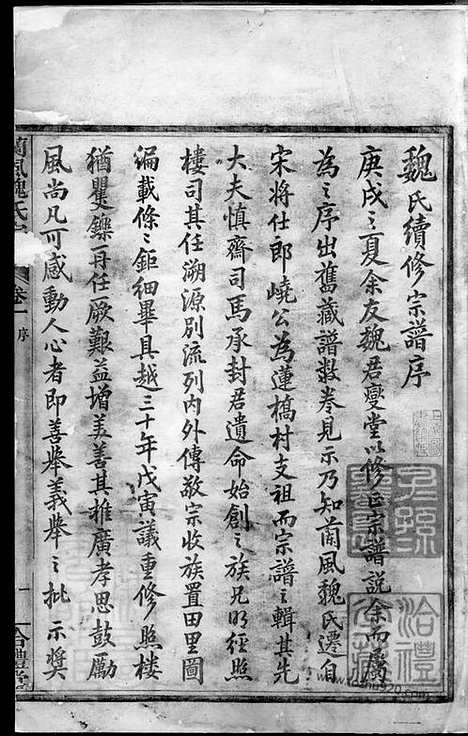 魏氏續修宗譜序
庚戌之夏余友魏君燮堂以修正宗譜説余而屬
為之序出舊藏譜数卷見示乃知蘭風魏氏遷自
宋將仕郎嶢公為蓮橋村支祖而宗譜之輯其先
大夫慎齋司馬承封君遺命始創之族兄明經照
樓司其任溯源别流列内外傳敬宗收族置田里圖
編載條〻鉅細畢具越三十年戊寅議重修照樓
猶矍鑠再任厥艱益增美善其推廣孝思鼓勵
風尚凡可感動人心者即善舉義舉之批示奬
蘭風魏氏宗
卷一
序
一
合禮堂